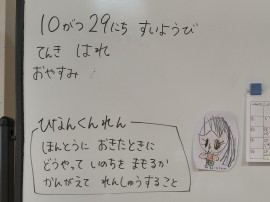 10がつ29にち すいようび
てんき はれ
おやすみ
ひなんくんれん
ほんとうに おきたときに
どうやって いのちを まもるか
かんがえて れんしゅうすること